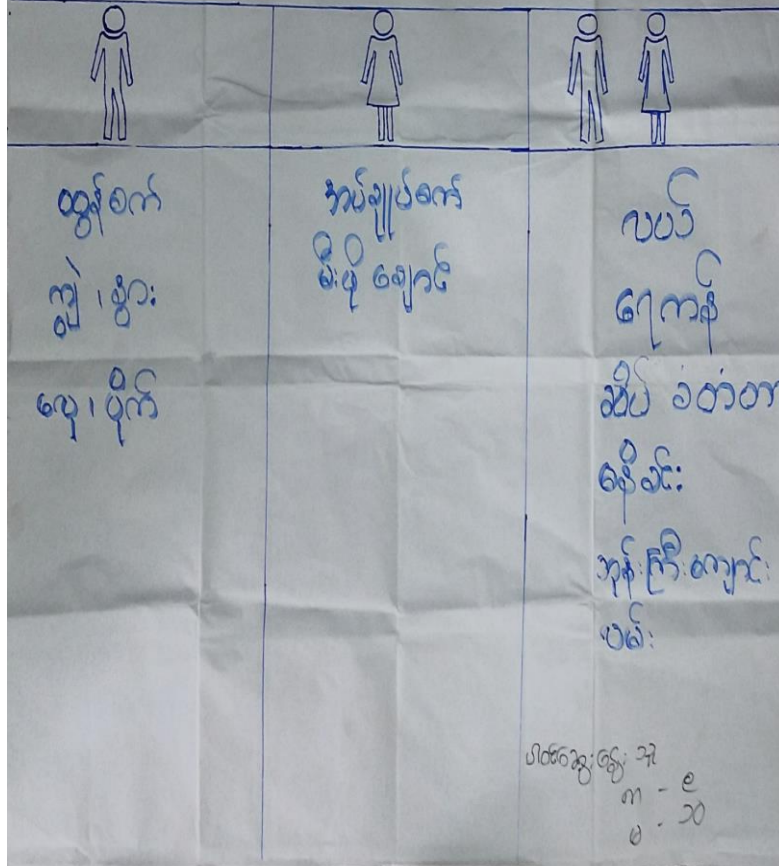 ထွန်စက်
ကျွဲ ၊ နွား
လှေ ၊ ပိုက်
အပ်ချုပ်စက်
မီးဖို ချောင်
လယ်
ရေကန်
ဆိပ် ခံတံတား
စနိုးခင်း
ဘုန်းကြီးကျောင်း
လမ်း
ပါဝင်ဆွေးနွေး သူ
ကျား - ၉
မ - ၁၀